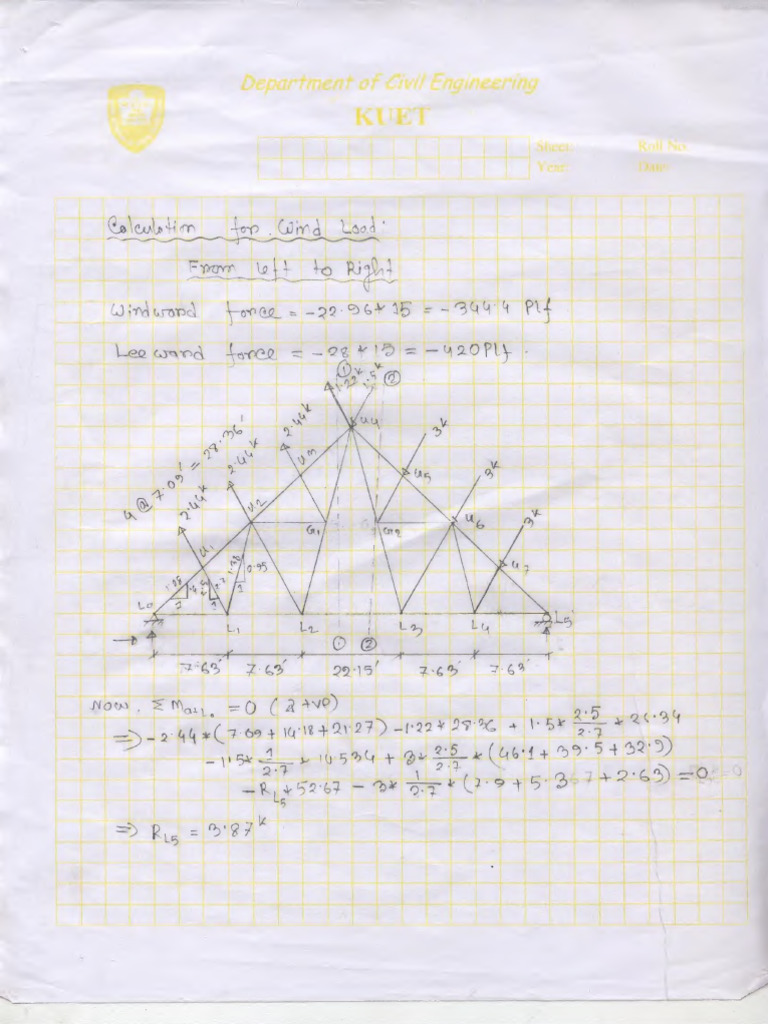 Department of Civil Engineering
KUET
Sheet: Roll No:
Year: Date:
Calculation for Wind Load.
From Left to Right
Windward force = -22.96*15 = -344.4 Plf
Leeward force = -28*15 = -420 Plf.
① ②
1.22k 1.5k
U4
2.44k 3k
4 @ 7.09' = 28.36'
2.44k U3 U5 3k
2.44k U2 G1 G2 U6 3k
U1 U7
1 1 1
L0 L1 L2 L3 L4 L5
① ②
7.63' 7.63' 22.15' 7.63' 7.63'
Now, ΣM @ L0 = 0 (+ve)
⇒ -2.44*(7.09+14.18+21.27) -1.22*28.36 + 1.5*2.5/2.7*26.34
-1.5*1/2.7*10.534 + 3*2.5/2.7*(46.1+39.5+32.9)
-RL5*52.67 - 3*1/2.7*(7.9+5.267+2.63) = 0
⇒ RL5 = 3.87k